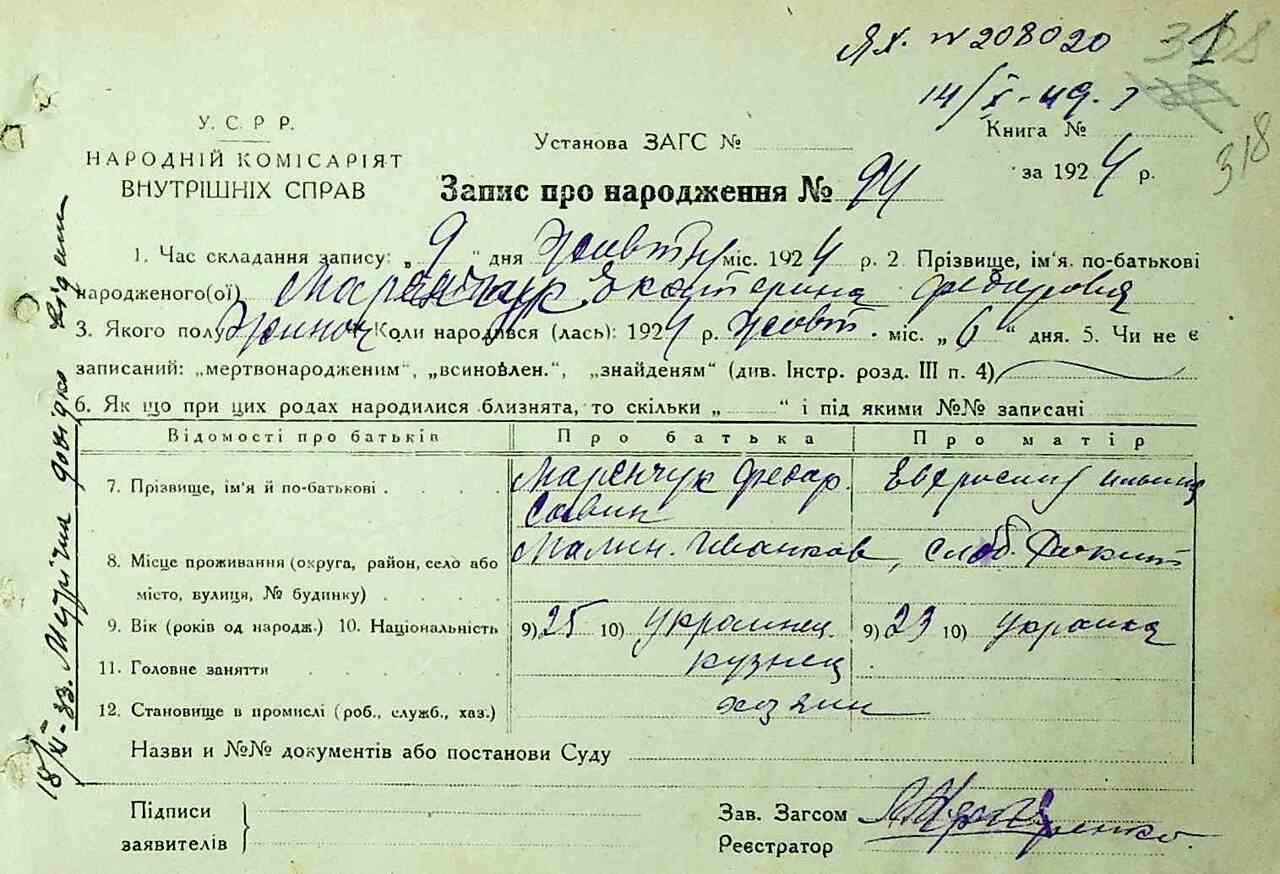 ЯХ. № 208020
14/X-49. г
318
У.С.Р.Р.
НАРОДНІЙ КОМІСАРІЯТ
ВНУТРІШНІХ СПРАВ
Установа ЗАГС №
Книга №
за 1924 р.
Запис про народження № 94
1. Час складання запису: „9“ дня Жовтня міс. 1924 р. 2 Прізвище, ім'я, по-батькові
народженого(ої) Маренчук Екатерина Федоровна
3. Якого полу Жиноч 4. Коли народився (лась): 1924 р. Жовт. міс. „6“ дня. 5. Чи не є
записаний: „мертвонародженим“, „всиновлен.“, „знайденям“ (див. Інстр. розд. III п. 4)
6. Як що при цих родах народилися близнята, то скільки „ “ і під якими №№ записані
Відомості про батьків Про батька Про матір
7. Прізвище, ім'я й по-батькові Маренчук Федар. Евдросину
Савин
8. Місце проживання (округа, район, село або Малин. Иванков, слоб.
місто, вулиця, № будинку)
9. Вік (років од народж.) 10. Національність 9) 25 10) Украинец 9) 23 10) Украинка
11. Головне заняття кузнец
12. Становище в промислі (роб., служб., хаз.) хозяин
Назви и №№ документів або постанови Суду
Підписи
заявителів
Зав. Загсом
Реєстратор
18/XI-83. довідка